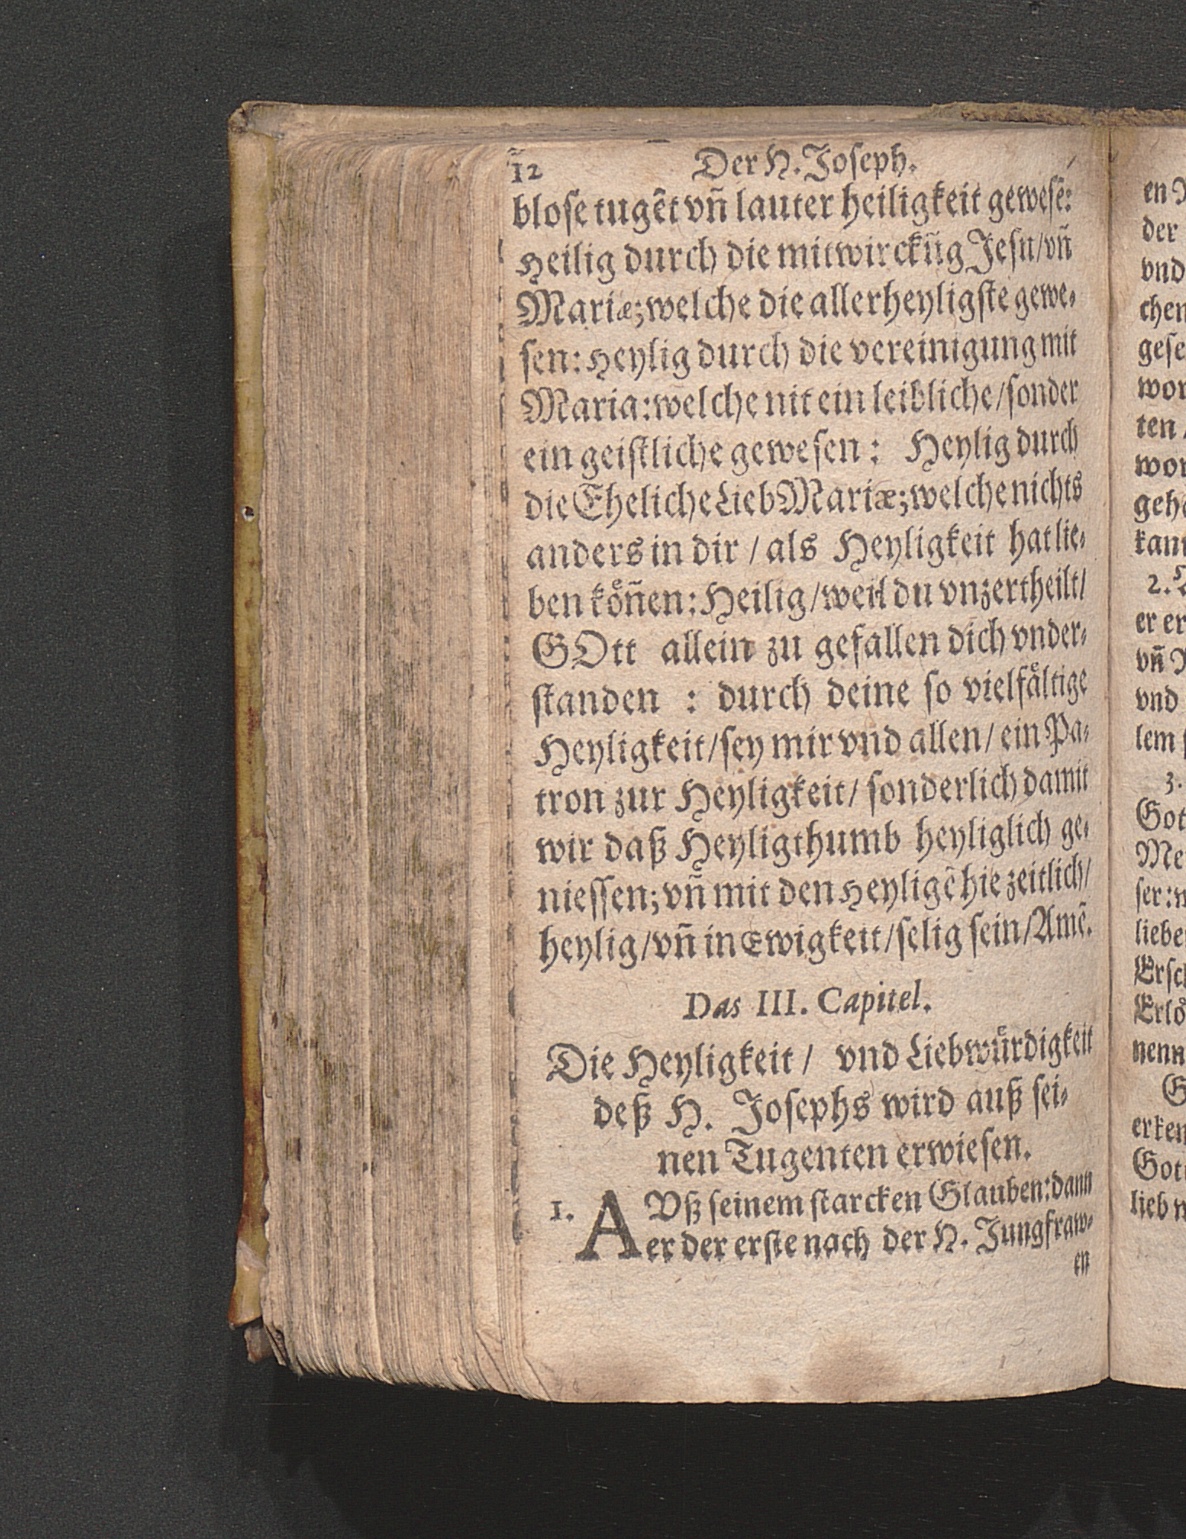 12 Der H. Joseph.
blose tugẽt vñ lauter heiligkeit gewesẽ:
Heilig durch die mitwirckũg Jesu/vñ
Mariæ; welche die allerheyligste gewe-
sen: Heylig durch die vereinigung mit
Maria: welche nit ein leibliche/sonder
ein geistliche gewesen: Heylig durch
die Eheliche Lieb Mariæ; welche nichts
anders in dir / als Heyligkeit hat lie-
ben köñen: Heilig/weil du vnzertheilt/
GOtt allein zu gefallen dich vnder-
standen : durch deine so vielfältige
Heyligkeit/sey mir vnd allen/ein Pa-
tron zur Heyligkeit/ sonderlich damit
wir daß Heyligthumb heyliglich ge-
niessen; vñ mit den Heyligẽ hie zeitlich/
heylig/vñ in Ewigkeit/selig sein/Amẽ.
Das III. Capitel.
Die Heyligkeit / vnd Liebwürdigkeit
deß H. Josephs wird auß sei-
nen Tugenten erwiesen.
1. AVß seinem starcken Glauben: dann
er der erste nach der H. Jungfraw-
en
der
vnd
chen
gese
wor
ten
wor
gehö
kann
2.
er er
vñ
vnd
lem
3.
Got
Me
ser:
liebe
Ersch
Erlö
nenn
G
erken
Got
lieb w